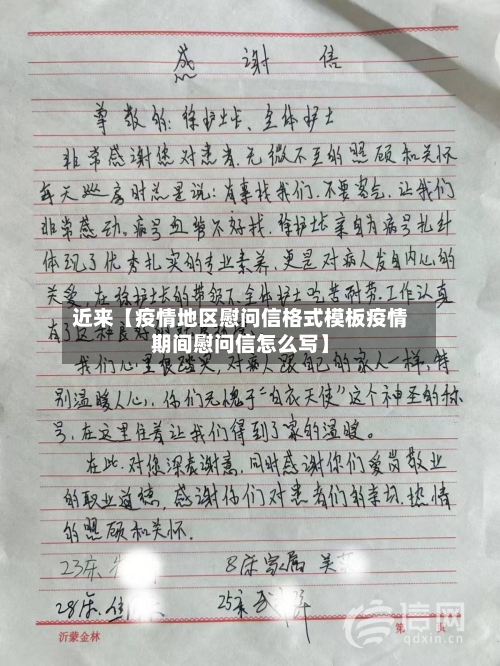 感谢信
尊敬的：徐护士长、全体护士
非常感谢您对患者无微不至的照顾和关怀
每天巡房时总是说：有事找我们，不要客气，让我们
非常感动。病号血管不好找，徐护士长亲自为病号扎针
体现了优秀扎实的专业素养，更是对病人发自内心的
关爱，在徐护士长的带领下全体护士吃苦耐劳，工作认真
近来【疫情地区慰问信格式模板疫情
期间慰问信怎么写】
我们心里很踏实，对病人跟自己的家人一样，特
别温暖人心，你们无愧于“白衣天使”这个神圣的称
号，在这里住着让我们得到了家的温暖。
在此，对您深表谢意，同时感谢你们爱岗敬业
的职业道德，感谢你们对患者们的亲切、热情
的照顾和关怀。
23床 8床家属 吴
28床 25床
沂蒙金林 第 页
信网
qdxin.cn